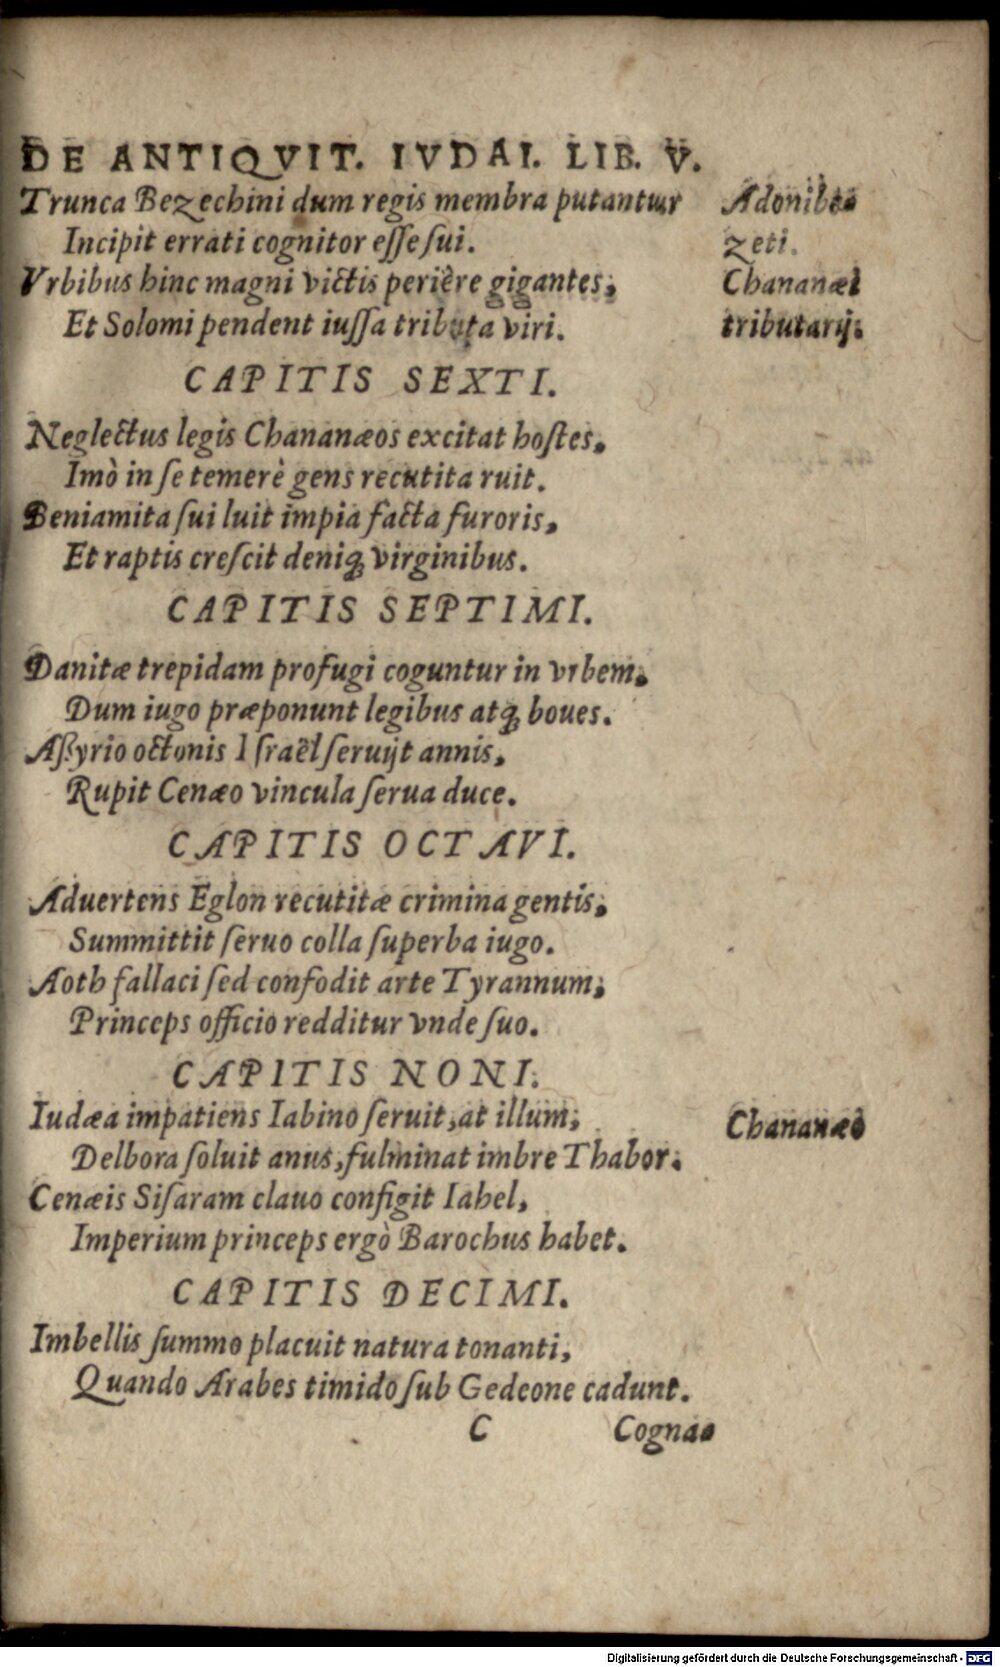 DE ANTIQVIT. IVDAI. LIB. V.
Trunca Bezechini dum regis membra putantur
Adonibe-
Incipit errati cognitor eſſe ſui.
zeti.
Vrbibus hinc magni victis periêre gigantes,
Chananæi
Et Solomi pendent iuſſa tributa viri.
tributarij.
CAPITIS SEXTI.
Neglectus legis Chananæos excitat hoſtes,
Imò in ſe temerè gens recutita ruit.
Beniamita ſui luit impia facta furoris,
Et raptis creſcit deniq; virginibus.
CAPITIS SEPTIMI.
Danitæ trepidam profugi coguntur in vrbem,
Dum iugo præponunt legibus atq; boues.
Aßyrio octonis Iſraël ſeruijt annis,
Rupit Cenæo vincula ſerua duce.
CAPITIS OCTAVI.
Aduertens Eglon recutitæ crimina gentis,
Summittit ſeruo colla ſuperba iugo.
Aoth fallaci ſed confodit arte Tyrannum,
Princeps officio redditur vnde ſuo.
CAPITIS NONI.
Iudæa impatiens Iabino ſeruit, at illum,
Chananæo
Delbora ſoluit anus, fulminat imbre Thabor.
Cenæis Siſaram clauo configit Iahel,
Imperium princeps ergò Barochus habet.
CAPITIS DECIMI.
Imbellis ſummo placuit natura tonanti,
Quando Arabes timido ſub Gedeone cadunt.
C
Cogna-
Digitalisierung gefördert durch die Deutsche Forschungsgemeinschaft - DFG